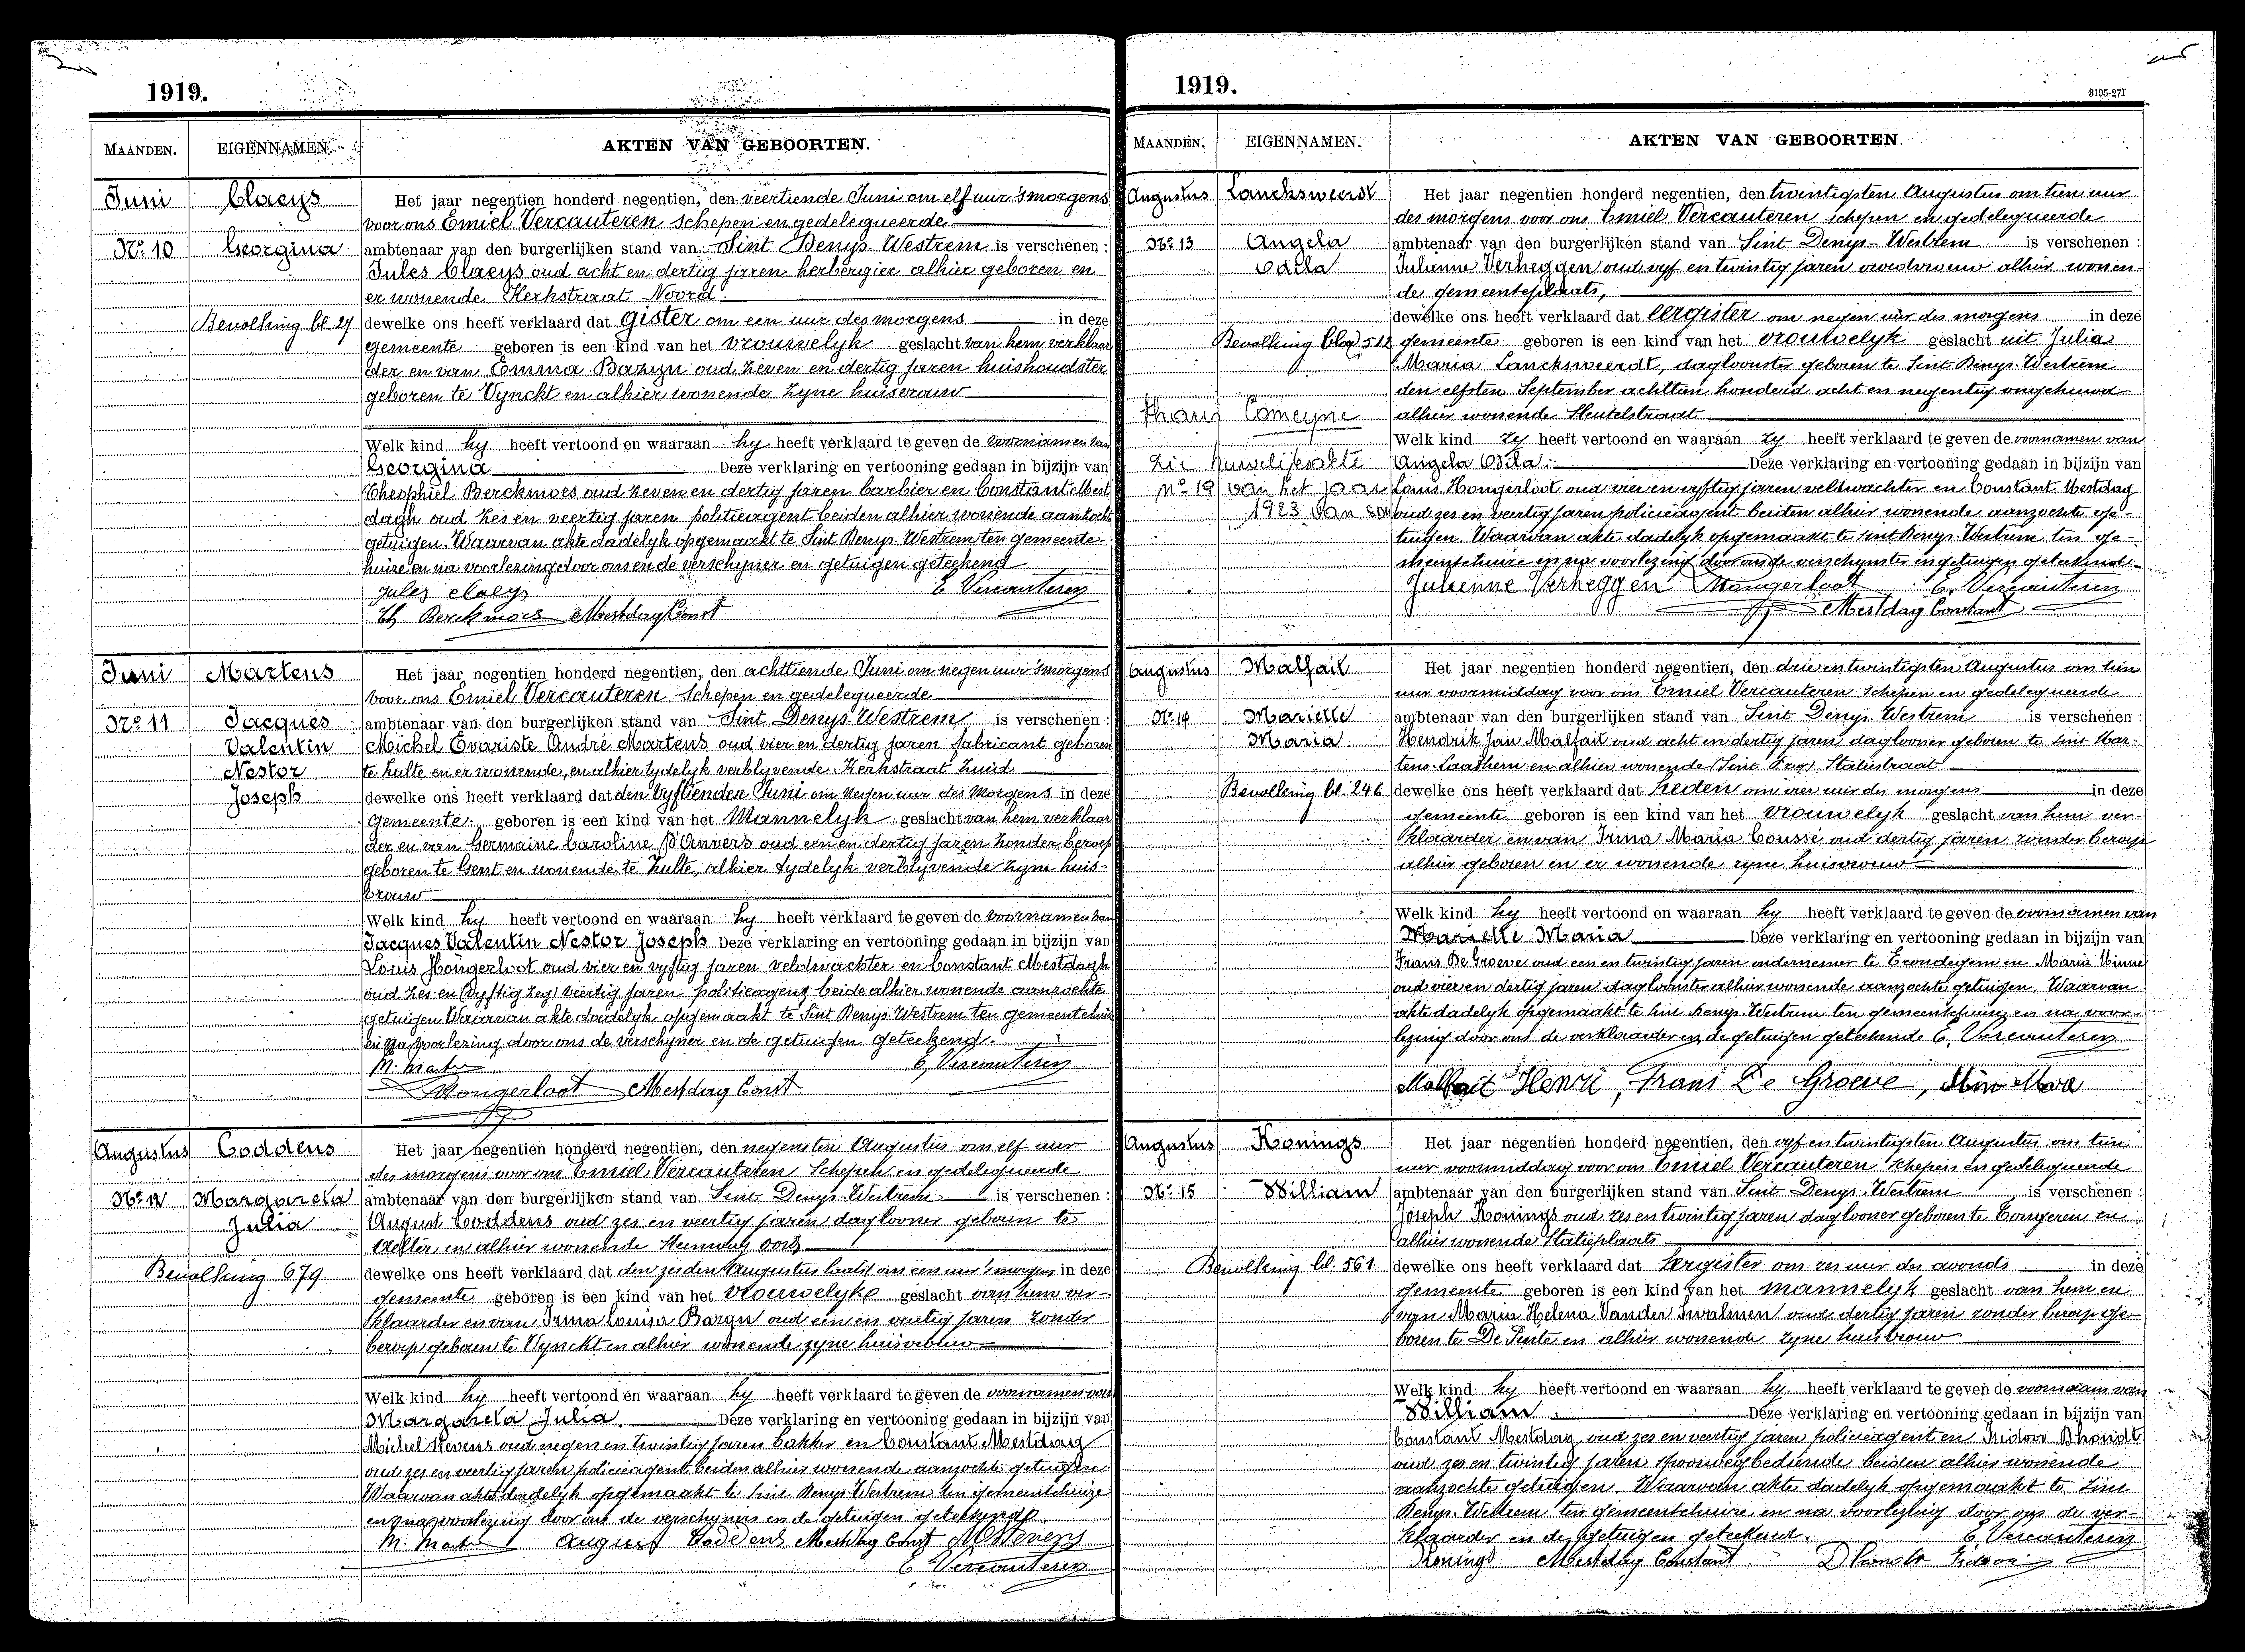 1919.
MAANDEN. EIGENNAMEN. AKTEN VAN GEBOORTEN.
Juni Claeys Het jaar negentien honderd negentien, den veertiende Juni om elf uur 's morgens
voor ons Emiel Vercauteren Schepen en gedelegueerde
No 10 Georgina ambtenaar van den burgerlijken stand van Sint Denys-Westrem is verschenen :
Jules Claeys oud acht en dertig jaren herbergier alhier geboren en
er wonende Kerkstraat Noord
Bevolking bl 27 dewelke ons heeft verklaard dat gister om een uur des morgens in deze
gemeente geboren is een kind van het vrouwelyk geslacht van hem verklaar
der en van Emma Bazyn oud zeven en dertig jaren huishoudster
geboren te Vynckt en alhier wonende zyne huisvrouw
Welk kind hy heeft vertoond en waaraan hy heeft verklaard te geven de voornamen van
Georgina Deze verklaring en vertooning gedaan in bijzijn van
Theophiel Berckmoes oud zeven en dertig jaren barbier en Constant Mest
dagh oud zes en veertig jaren politieagent beiden alhier wonende aanzocht
getuigen. Waarvan akte dadelyk opgemaakt te Sint Denys-Westrem ten gemeente
huize en na voorlezing door ons en de verschyner en getuigen geteekend
Jules Claeys E. Vercauteren
Th Berckmoes Mestdag Const
Juni Martens Het jaar negentien honderd negentien, den achttiende Juni om negen uur 's morgens
voor ons Emiel Vercauteren Schepen en gedelegueerde
No 11 Jacques ambtenaar van den burgerlijken stand van Sint Denys Westrem is verschenen :
Valentin Michel Evariste André Martens oud vier en dertig jaren fabricant geboren
Nestor te Zulte en er wonende, en alhier tydelyk verblyvende Kerkstraat Zuid
Joseph dewelke ons heeft verklaard dat den vyftienden Juni om negen uur des morgens in deze
gemeente geboren is een kind van het Mannelyk geslacht van hem verklaar
der en van Germaine Caroline D'Anvers oud een en dertig jaren zonder beroep
geboren te Gent en wonende te Zulte, alhier tydelyk verblyvende zyne huis-
vrouw
Welk kind hy heeft vertoond en waaraan hy heeft verklaard te geven de voornamen van
Jacques Valentin Nestor Joseph Deze verklaring en vertooning gedaan in bijzijn van
Louis Hongerloot oud vier en vyftig jaren veldwachter en Constant Mestdagh
oud zes en (vyftig zeg) veertig jaren politieagent beide alhier wonende aanzochte
getuigen Waarvan akte dadelyk opgemaakt te Sint Denys Westrem ten gemeentehuize
en na voorlezing door ons de verschyner en de getuigen geteekend.
M. Martens E. Vercauteren
Hongerloot Mestdag Const
Augustus Coddens Het jaar negentien honderd negentien, den negensten Augustus om elf uur
des morgens voor ons Emiel Vercauteren Schepen en gedelegueerde
No 12 Margareta ambtenaar van den burgerlijken stand van Sint Denys-Westrem is verschenen :
Julia August Coddens oud zes en veertig jaren daglooner geboren te
Aelter en alhier wonende Steenweg oord
Bevolking 679 dewelke ons heeft verklaard dat den zesden Augustus laatst om een uur 's morgens in deze
gemeente geboren is een kind van het vrouwelyke geslacht van hem ver-
klaarder en van Irma Louisa Bazyn oud een en veertig jaren zonder
beroep geboren te Vynckt en alhier wonende zyne huisvrouw
Welk kind hy heeft vertoond en waaraan hy heeft verklaard te geven de voornamen van
Margareta Julia. Deze verklaring en vertooning gedaan in bijzijn van
Michel Stevens oud negen en twintig jaren bakker en Constant Mestdag
oud zes en veertig jaren policieagent beiden alhier wonende aanzochte getuigen
Waarvan akte dadelyk opgemaakt te Sint Denys-Westrem ten gemeentehuize
en na voorlezing door ons de verschyners en de getuigen geteekend.
August Coddens Mestdag Const M Stevens
E. Vercauteren
1919.
3195-271
MAANDEN. EIGENNAMEN. AKTEN VAN GEBOORTEN.
Augustus Lancksweerdt Het jaar negentien honderd negentien, den twintigsten Augustus om tien uur
des morgens voor ons Emiel Vercauteren schepen en gedelegueerde
No 13 Angela ambtenaar van den burgerlijken stand van Sint Denys-Westrem is verschenen :
Odila Julienne Verheggen oud vyf en twintig jaren vroedvrouw alhier wonen-
de gemeenteplaats,
dewelke ons heeft verklaard dat eergister om negen uur des morgens in deze
Bevolking blad 512 gemeente geboren is een kind van het vrouwelyk geslacht uit Julia
Maria Lancksweerdt, dagloonster geboren te Sint Denys-Westrem
den elfsten September achttien honderd acht en negentig ongehuwd
thans Comeyne alhier wonende Sleutelstraat
Welk kind zy heeft vertoond en waaraan zy heeft verklaard te geven de voornamen van
zie huwelijksakte Angela Odila. Deze verklaring en vertooning gedaan in bijzijn van
No 19 van het jaar Louis Hongerloot oud vier en vyftig jaren veldwachter en Constant Mestdag
1923 van oud zes en veertig jaren policieagent beiden alhier wonende aanzochte ge-
tuigen. Waarvan akte dadelyk opgemaakt te Sint Denys-Westrem ten ge-
meentehuize en na voorlezing door ons de verschynster en getuigen geteekend.
Julienne Verheggen Hongerloot E. Vercauteren
Mestdag Constant
Augustus Malfait Het jaar negentien honderd negentien, den drie en twintigsten Augustus om tien
uur voormiddag voor ons Emiel Vercauteren schepen en gedelegueerde
No 14 Marielle ambtenaar van den burgerlijken stand van Sint Denys-Westrem is verschenen :
Maria. Hendrik Jan Malfait oud acht en dertig jaren daglooner geboren te Sint Mar-
tens-Laathem en alhier wonende Statiestraat
Bevolking bl. 246 dewelke ons heeft verklaard dat heden om vier uur des morgens in deze
gemeente geboren is een kind van het vrouwelyk geslacht van hem ver-
klaarder en van Irma Maria Coussé oud dertig jaren zonder beroep
alhier geboren en er wonende zyne huisvrouw
Welk kind hy heeft vertoond en waaraan hy heeft verklaard te geven de voornamen van
Marielle Maria Deze verklaring en vertooning gedaan in bijzijn van
Frans De Groeve oud een en twintig jaren ondernemer te Erondegem en Maria Minne
oud vier en dertig jaren dagloonster alhier wonende aanzochte getuigen. Waarvan
akte dadelyk opgemaakt te Sint Denys-Westrem ten gemeentehuize en na voor-
lezing door ons de verklaarder en de getuigen geteekend E. Vercauteren
Malfait Henri, Frans De Groeve,
Augustus Konings Het jaar negentien honderd negentien, den vyf en twintigsten Augustus om tien
uur voormiddag voor ons Emiel Vercauteren schepen en gedelegueerde
No 15 William ambtenaar van den burgerlijken stand van Sint Denys-Westrem is verschenen :
Joseph Konings oud zes en twintig jaren daglooner geboren te Tongeren en
alhier wonende Statieplaats
Bevolking bl. 561 dewelke ons heeft verklaard dat eergister om zes uur des avonds in deze
gemeente geboren is een kind van het mannelyk geslacht van hem en
van Maria Helena Vander Swalmen oud dertig jaren zonder beroep ge-
boren te De Pinte en alhier wonende zyne huisvrouw
Welk kind hy heeft vertoond en waaraan hy heeft verklaard te geven de voornaam van
William. Deze verklaring en vertooning gedaan in bijzijn van
Constant Mestdag oud zes en veertig jaren policieagent en Isidoor Dhondt
oud zes en twintig jaren spoorwegbediende beiden alhier wonende
aanzochte getuigen. Waarvan akte dadelyk opgemaakt te Sint
Denys-Westrem ten gemeentehuize en na voorlezing door ons de ver-
klaarder en de getuigen geteekend. E. Vercauteren
Konings Mestdag Constant